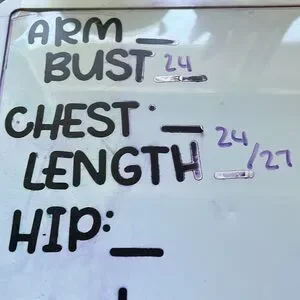 ARM _
BUST 24
CHEST: _
LENGTH 24/27
HIP: _